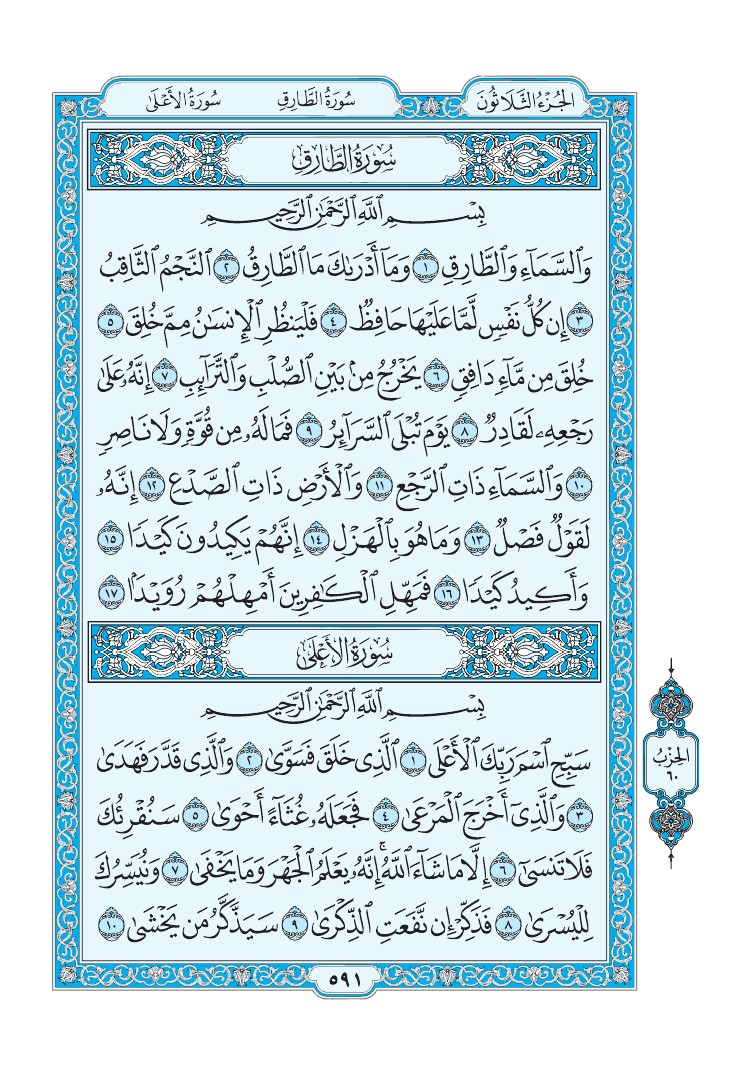 الجُزْءُ الثَّلَاثُونَ سُورَةُ الطَّارِقِ سُورَةُ الأَعْلَى
سُورَةُ الطَّارِقِ
بِسْمِ اللَّهِ الرَّحْمَٰنِ الرَّحِيمِ
وَالسَّمَآءِ وَالطَّارِقِ ١ وَمَآ أَدْرَىٰكَ مَا الطَّارِقُ ٢ النَّجْمُ الثَّاقِبُ
٣ إِن كُلُّ نَفْسٍ لَّمَّا عَلَيْهَا حَافِظٌ ٤ فَلْيَنظُرِ الْإِنسَٰنُ مِمَّ خُلِقَ ٥
خُلِقَ مِن مَّآءٍ دَافِقٍ ٦ يَخْرُجُ مِنۢ بَيْنِ الصُّلْبِ وَالتَّرَآئِبِ ٧ إِنَّهُۥ عَلَىٰ
رَجْعِهِۦ لَقَادِرٌ ٨ يَوْمَ تُبْلَى السَّرَآئِرُ ٩ فَمَا لَهُۥ مِن قُوَّةٍ وَلَا نَاصِرٍ
١٠ وَالسَّمَآءِ ذَاتِ الرَّجْعِ ١١ وَالْأَرْضِ ذَاتِ الصَّدْعِ ١٢ إِنَّهُۥ
لَقَوْلٌ فَصْلٌ ١٣ وَمَا هُوَ بِالْهَزْلِ ١٤ إِنَّهُمْ يَكِيدُونَ كَيْدًا ١٥
وَأَكِيدُ كَيْدًا ١٦ فَمَهِّلِ الْكَٰفِرِينَ أَمْهِلْهُمْ رُوَيْدًۢا ١٧
سُورَةُ الأَعْلَىٰ
بِسْمِ اللَّهِ الرَّحْمَٰنِ الرَّحِيمِ
سَبِّحِ اسْمَ رَبِّكَ الْأَعْلَى ١ الَّذِى خَلَقَ فَسَوَّىٰ ٢ وَالَّذِى قَدَّرَ فَهَدَىٰ
٣ وَالَّذِىٓ أَخْرَجَ الْمَرْعَىٰ ٤ فَجَعَلَهُۥ غُثَآءً أَحْوَىٰ ٥ سَنُقْرِئُكَ
فَلَا تَنسَىٰٓ ٦ إِلَّا مَا شَآءَ اللَّهُ ۚ إِنَّهُۥ يَعْلَمُ الْجَهْرَ وَمَا يَخْفَىٰ ٧ وَنُيَسِّرُكَ
لِلْيُسْرَىٰ ٨ فَذَكِّرْ إِن نَّفَعَتِ الذِّكْرَىٰ ٩ سَيَذَّكَّرُ مَن يَخْشَىٰ ١٠
الحِزْبُ
٦٠
٥٩١